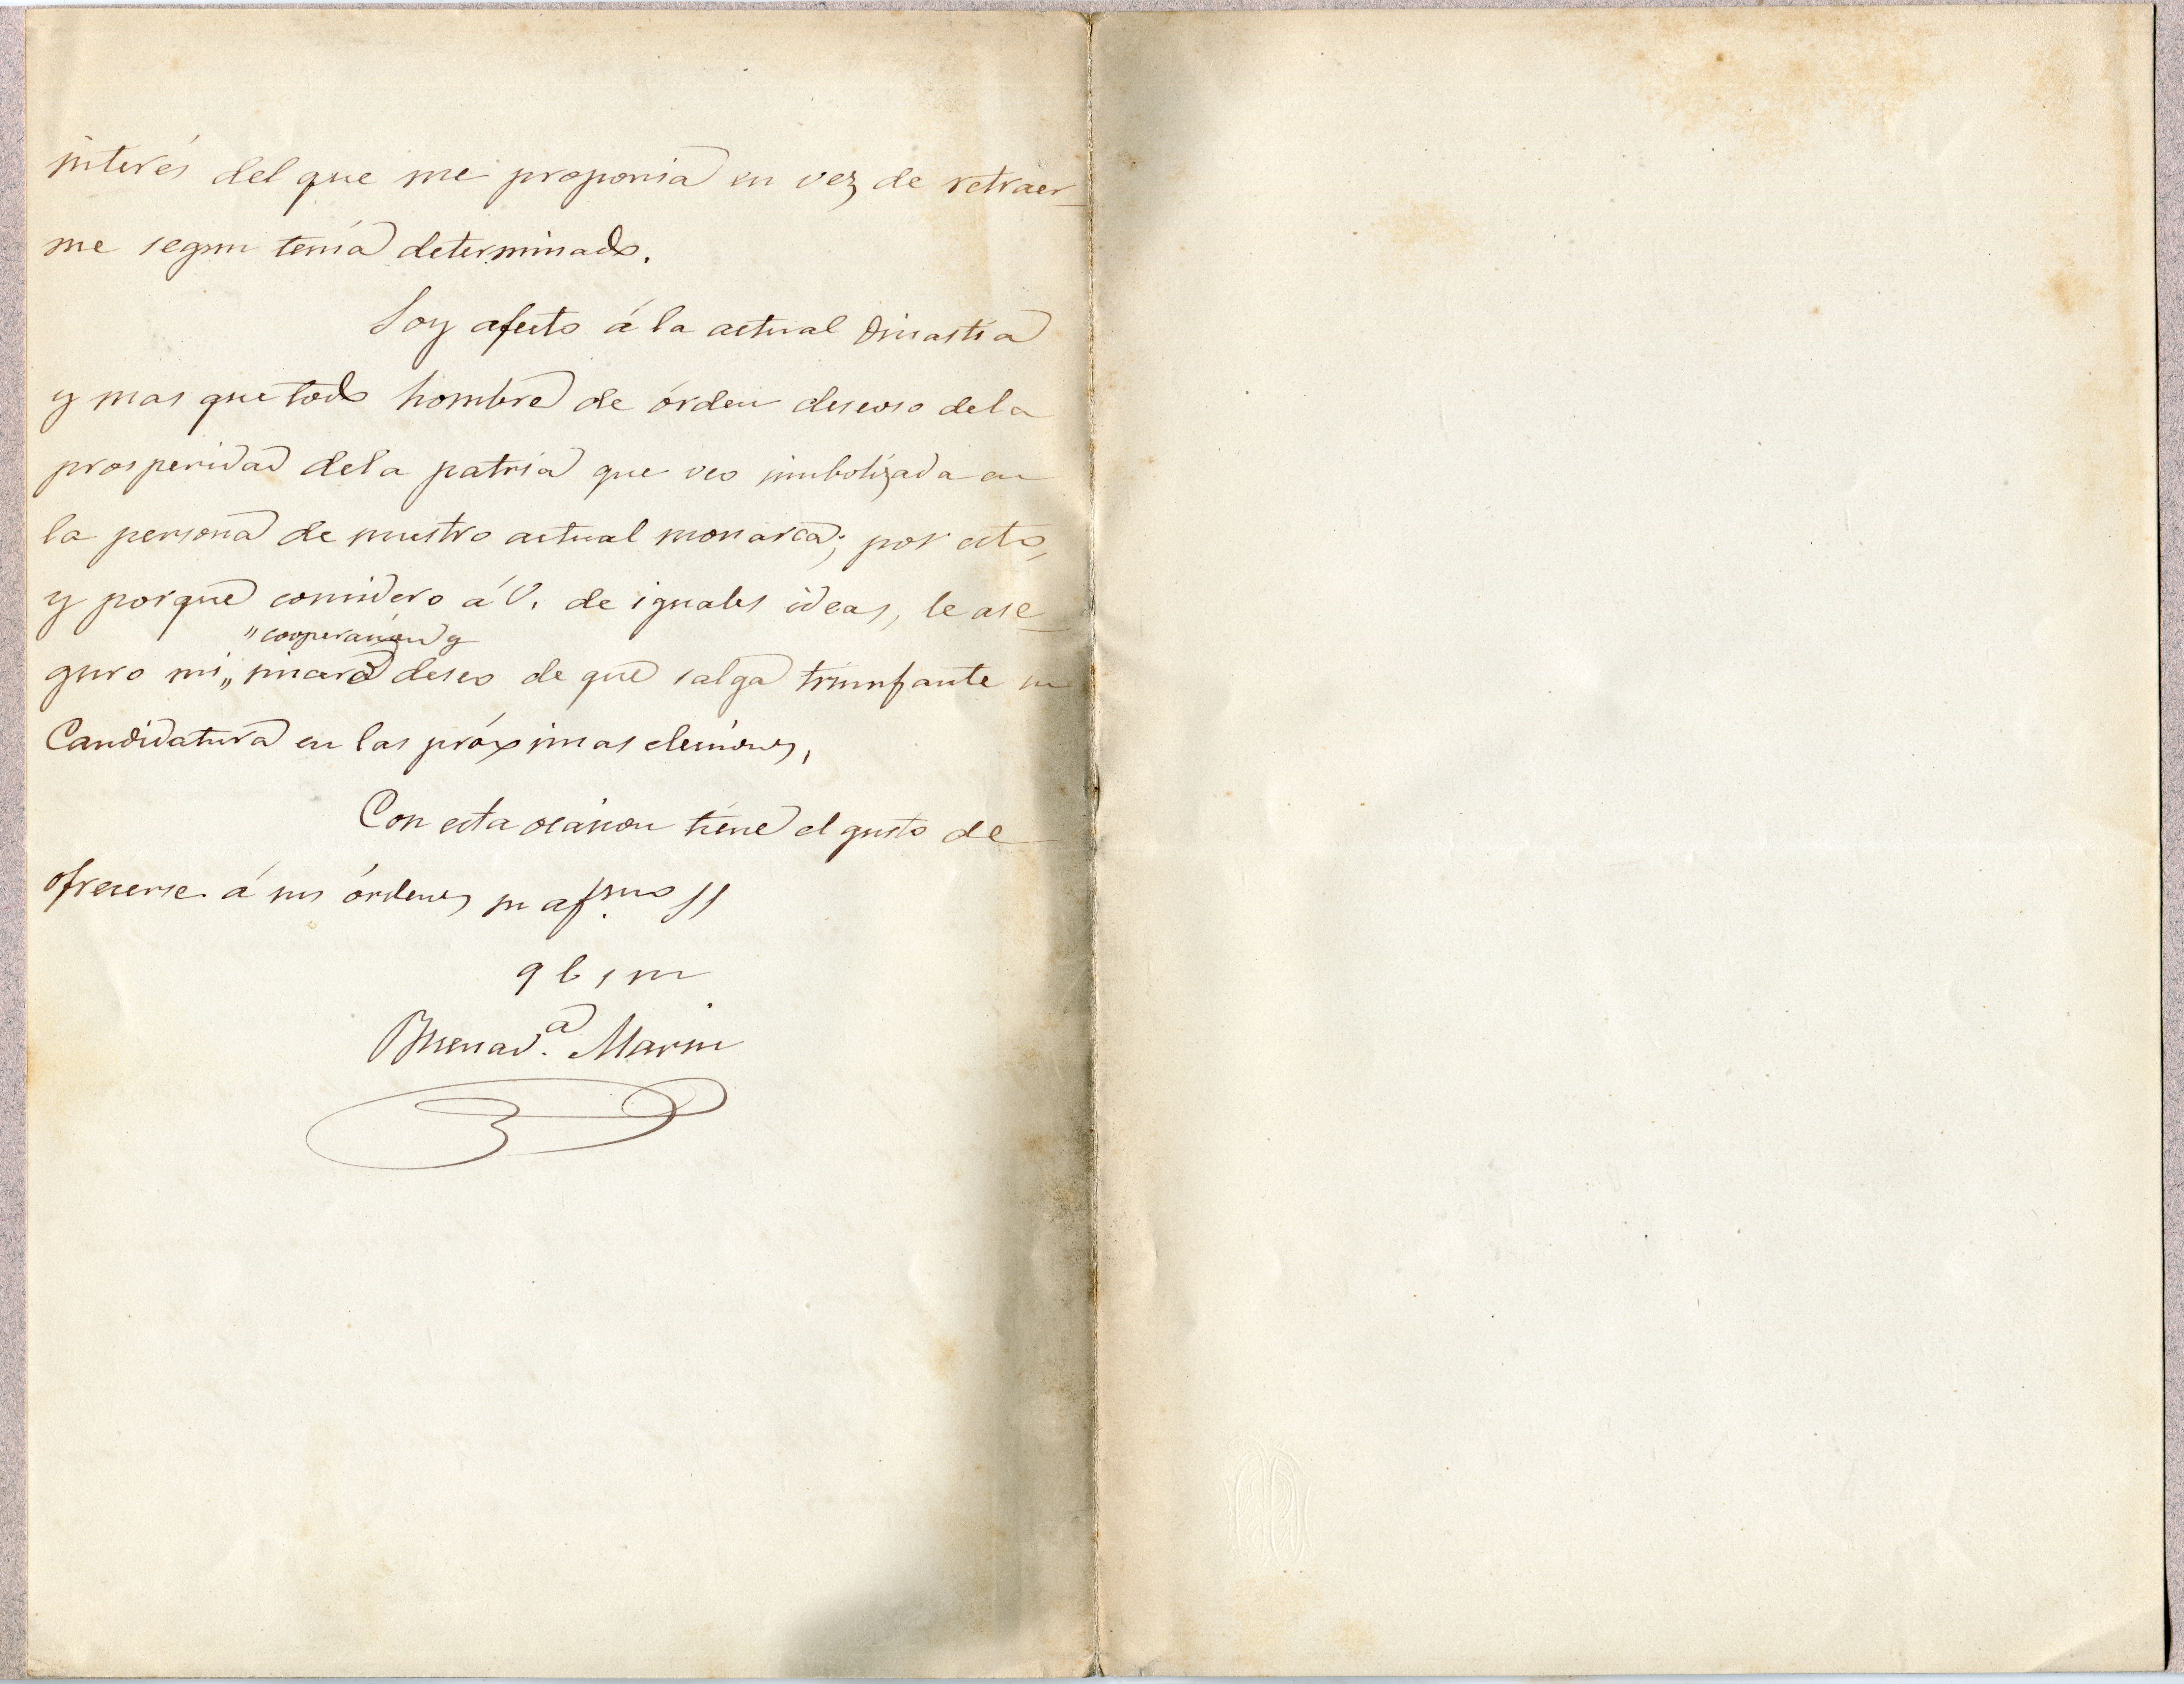 interés del que me proponia en vez de retraer-
me segun tenía determinado.
Soy afecto á la actual Dinastía
y mas que todo hombre de órden deseoso dela
prosperidad dela patria que veo simbolizada en
la persona de nuestro actual monarca; por esto,
y porque considero á V. de iguales ideas, le ase-
"cooperacion y
guro mi „ sincero deseo de que salga triunfante su
Candidatura en las próximas elecciones,
Con esta ocasion tiene el gusto de
ofrecerse á sus órdenes su af.mo SS
q b s m
Buenav.a Marin